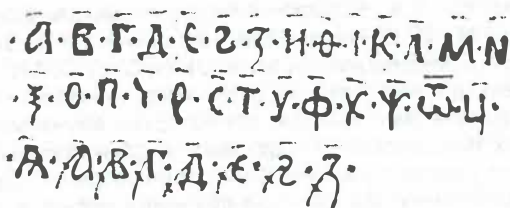 ·а҃·в҃·г҃·д҃·є҃·ѕ҃·з҃·и҃·ѳ҃·і҃·к҃·л҃·м҃·н҃
·ѯ҃·о҃·п҃·ч҃·р҃·с҃·т҃·у҃·ф҃·х҃·ѱ҃·ѿ҃·ц҃·
·а҃·҂а҃·҂в҃·҂г҃·҂д҃·҂є҃·҂ѕ҃·҂з҃·